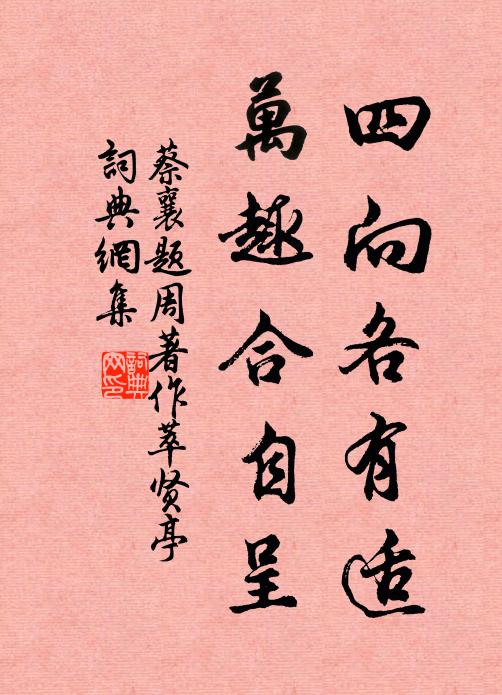 四向各有适
萬趣合自呈
蔡襄题周著作萃贤亭
詞典網集
詞典網印